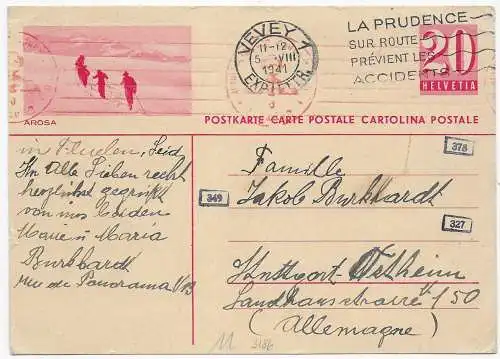 VEVEY 1
11-12
5 VIII
1941
LA PRUDENCE
SUR ROUTE
PRÉVIENT LES
ACCIDENTS
20
HELVETIA
AROSA
POSTKARTE CARTE POSTALE CARTOLINA POSTALE
Seid
Ihr Alle Lieben recht
herzlichst gegrüsst
von uns beiden
Marie u Maria
Burkhardt
rue du Panorama
Familie
Jakob Burkhardt
378
349
327
Stuttgart
150
(Allemagne)
11 3186